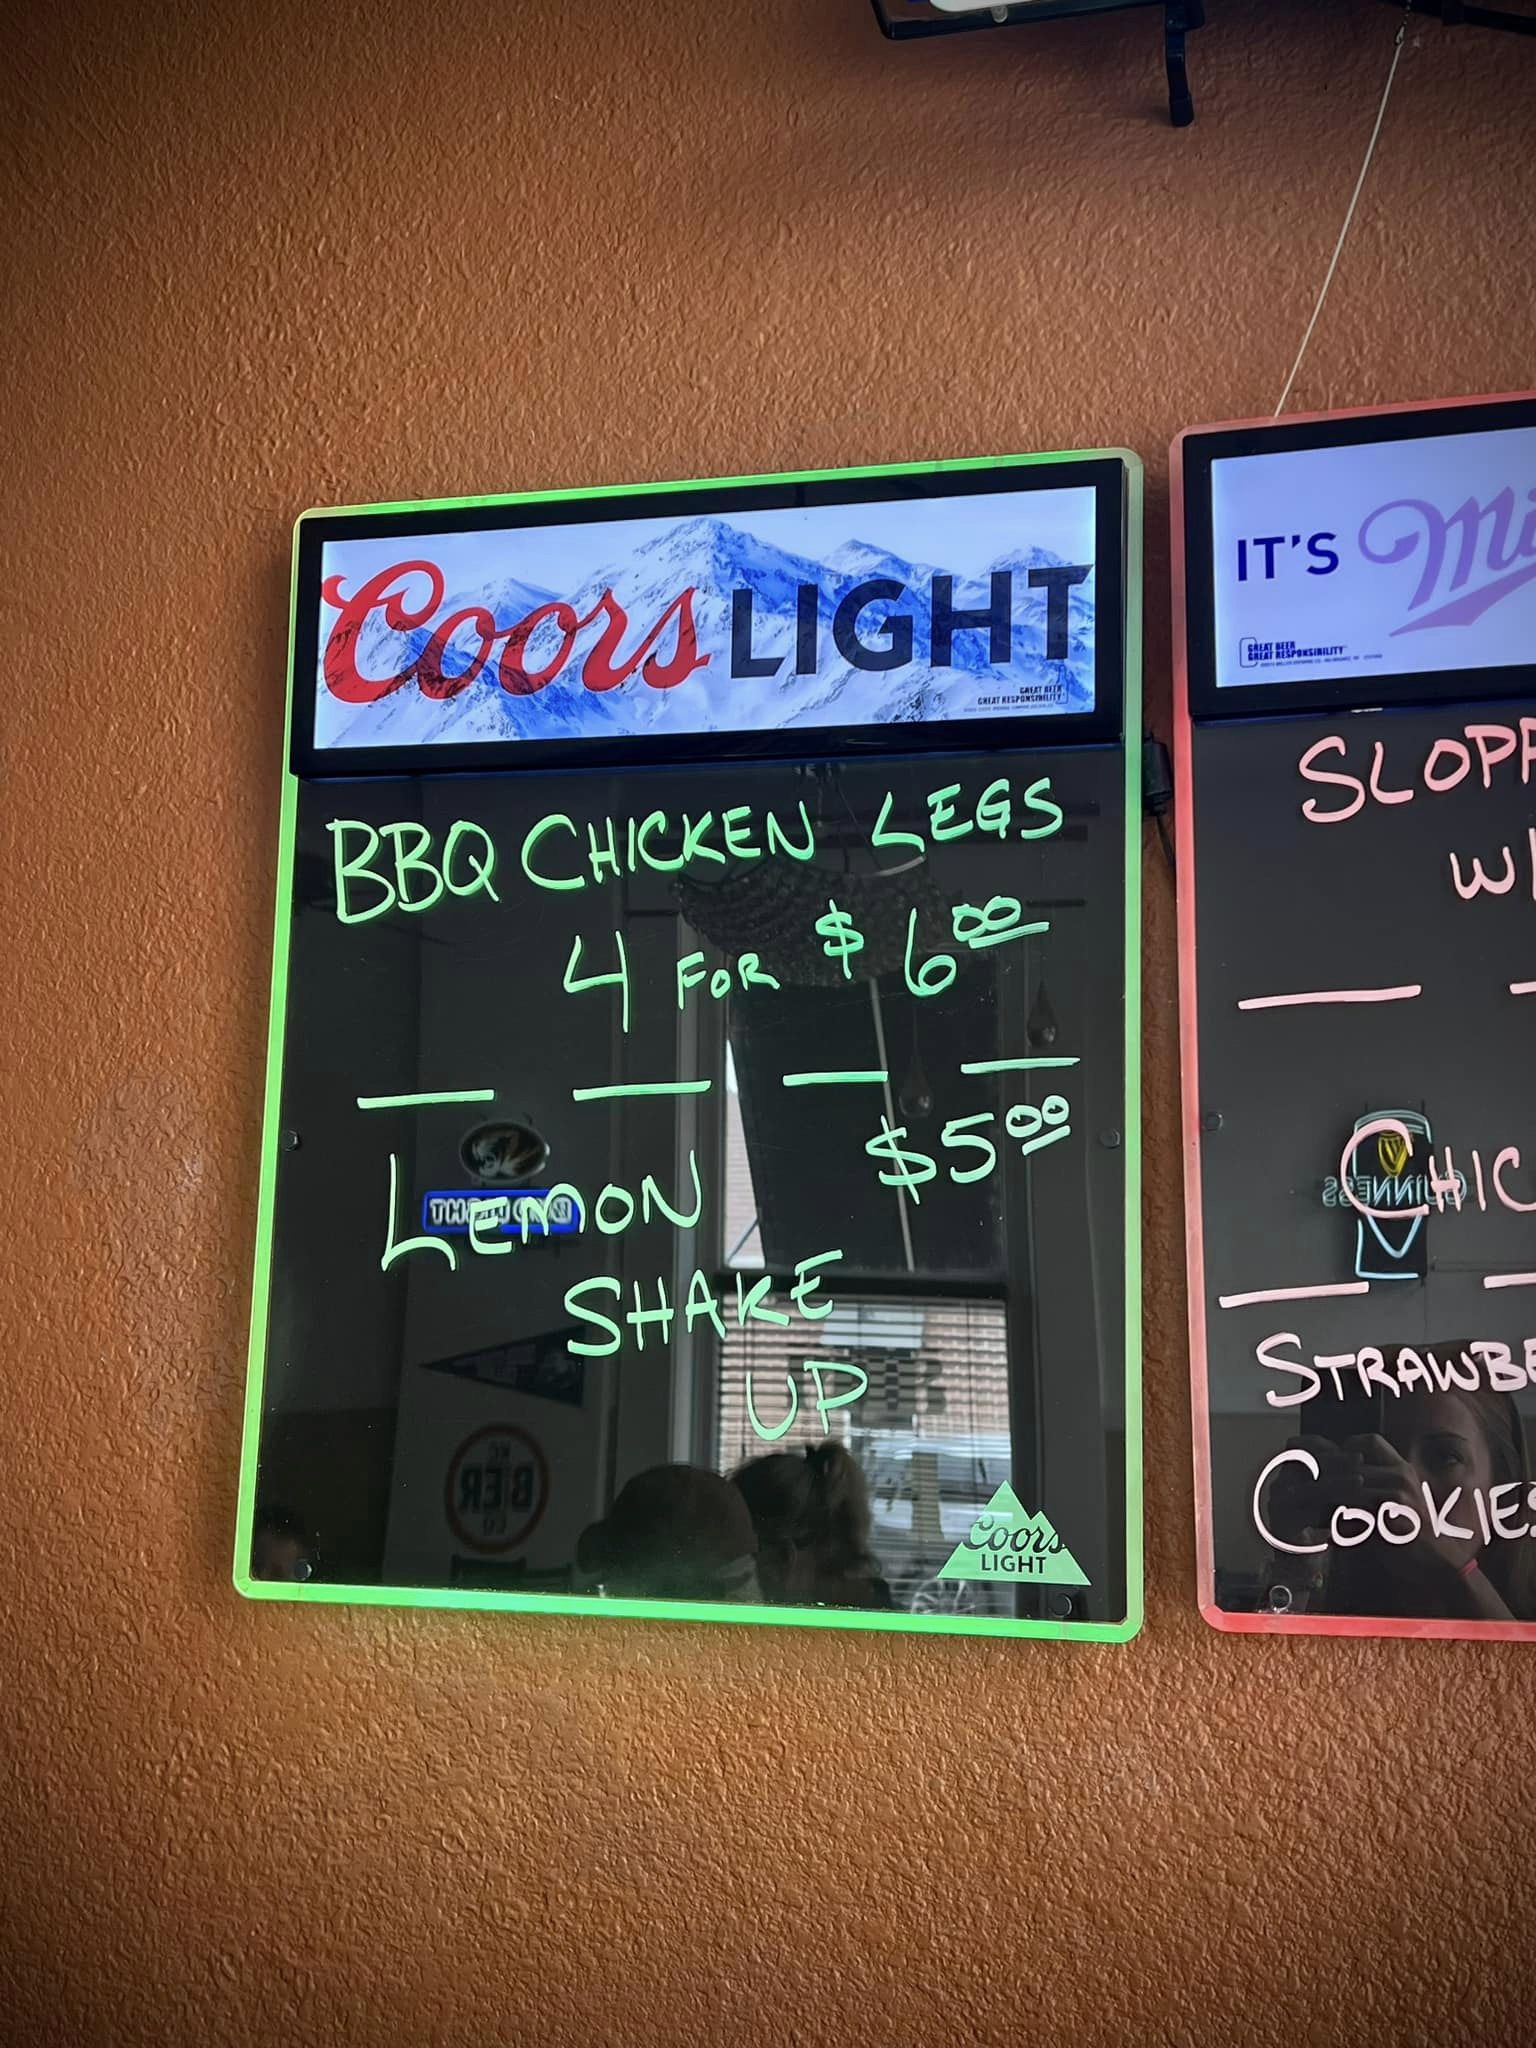 Coors LIGHT
GREAT BEER
GREAT RESPONSIBILITY
BBQ CHICKEN LEGS
4 FOR $6.00
$5.00
LEMON
SHAKE
UP
Coors
LIGHT
IT'S
GREAT BEER
GREAT RESPONSIBILITY
SLOPP
W/
CHIC
STRAWBE
COOKIES
GUINNESS